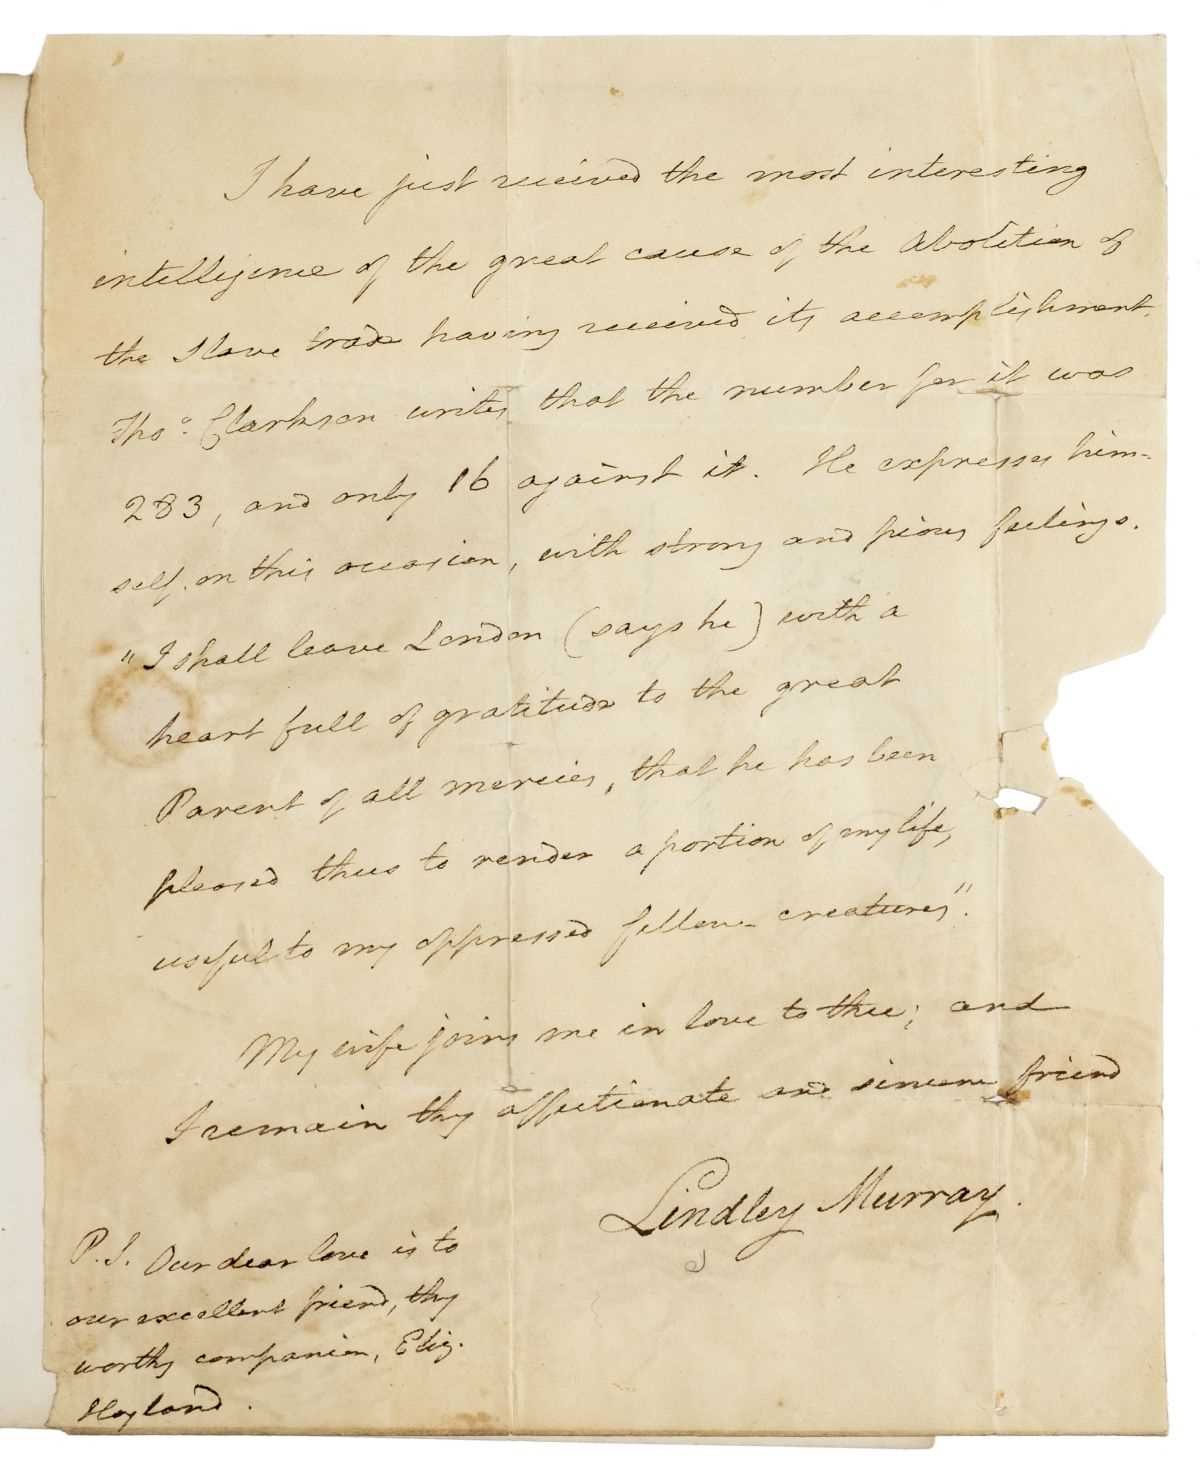 I have just received the most interesting
intelligence of the great cause of the Abolition of
the Slave trade having received its accomplishment.
Thos. Clarkson writes that the number for it was
283, and only 16 against it. He expresses him-
self, on this occasion, with strong and pious feelings.
"I shall leave London (says he) with a
heart full of gratitude to the great
Parent of all mercies, that he has been
pleased thus to render a portion of my life,
useful to my oppressed fellow-creatures".
My wife joins me in love to thee; and
I remain thy affectionate and sincere friend
Lindley Murray.
P.S. Our dear love is to
our excellent friend, thy
worthy companion, Eliz.
Hoyland.